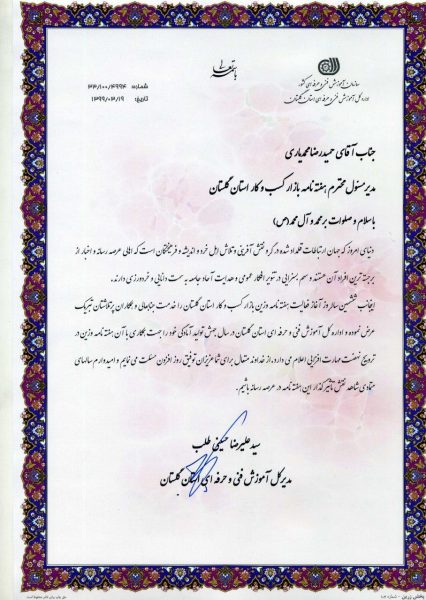 باسمه تعالی
سازمان آموزش فنی و حرفه ای کشور
اداره کل آموزش فنی و حرفه ای استان گلستان
شماره: ۳۳/۱۰۰/۴۹۹۴
تاریخ: ۱۳۹۹/۰۳/۱۹
جناب آقای حمیدرضا محمدیاری
مدیر مسئول محترم هفته نامه بازار کسب و کار استان گلستان
با سلام و صلوات بر محمد و آل محمد(ص)
دنیای امروز که جهان ارتباطات قلمداد شده در گرو نقش آفرینی و تلاش اهل خرد و اندیشه و فرهیختگان است که اهالی عرصه رسانه و اخبار از
برجسته ترین افراد آن هستند و سهم بسزایی در تنویر افکار عمومی و هدایت آحاد جامعه به سمت دانایی و خردورزی دارند.
اینجانب ششمین سالروز آغاز فعالیت هفته نامه وزین بازار کسب و کار استان گلستان را خدمت جنابعالی و همکاران پرتلاشتان تبریک
عرض نموده و اداره کل آموزش فنی و حرفه ای استان گلستان در سال جهش تولید آمادگی خود را جهت همکاری با آن هفته نامه وزین در
ترویج نهضت مهارت افزایی اعلام می دارد. از خداوند متعال برای شما عزیزان توفیق روز افزون مسئلت می نمایم و امیدوارم سالهای
متمادی شاهد نقش تأثیرگذار این هفته نامه در عرصه رسانه باشیم.
سید علیرضا حکیمی طلب
مدیر کل آموزش فنی و حرفه ای استان گلستان
پخش زرین